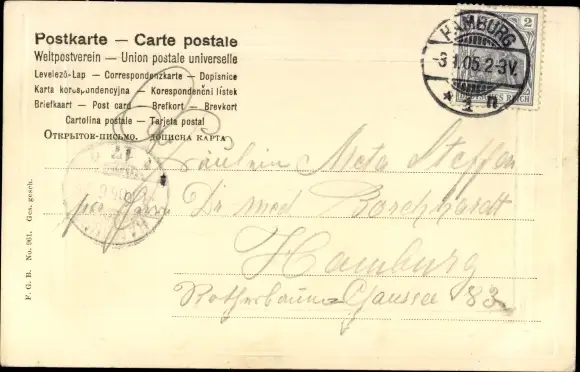 Postkarte — Carte postale
Weltpostverein — Union postale universelle
Levelező-Lap — Correspondenzkarte — Dopisnice
Karta korespondencyjna — Korespondenční lístek
Briefkaart — Post card — Brefkort — Brevkort
Cartolina postale — Tarjeta postal
Открытое-письмо. дописна карта
HAMBURG
-3.1.05.2-3V.
* 1 n
2
DEUTSCHES REICH
Fräulein Meta Steffen
Dr med Borchhardt
Hamburg
Rotherbaum-Chaussee 83
F. G. B. No. 001. Ges. gesch.